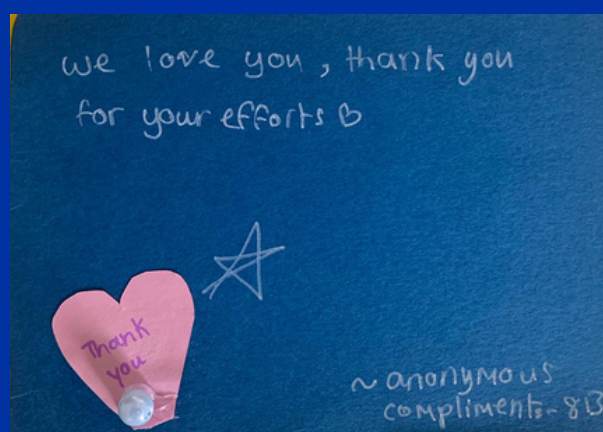 we love you, thank you
for your efforts ♡
Thank
you
~ anonymous
compliments - 8B